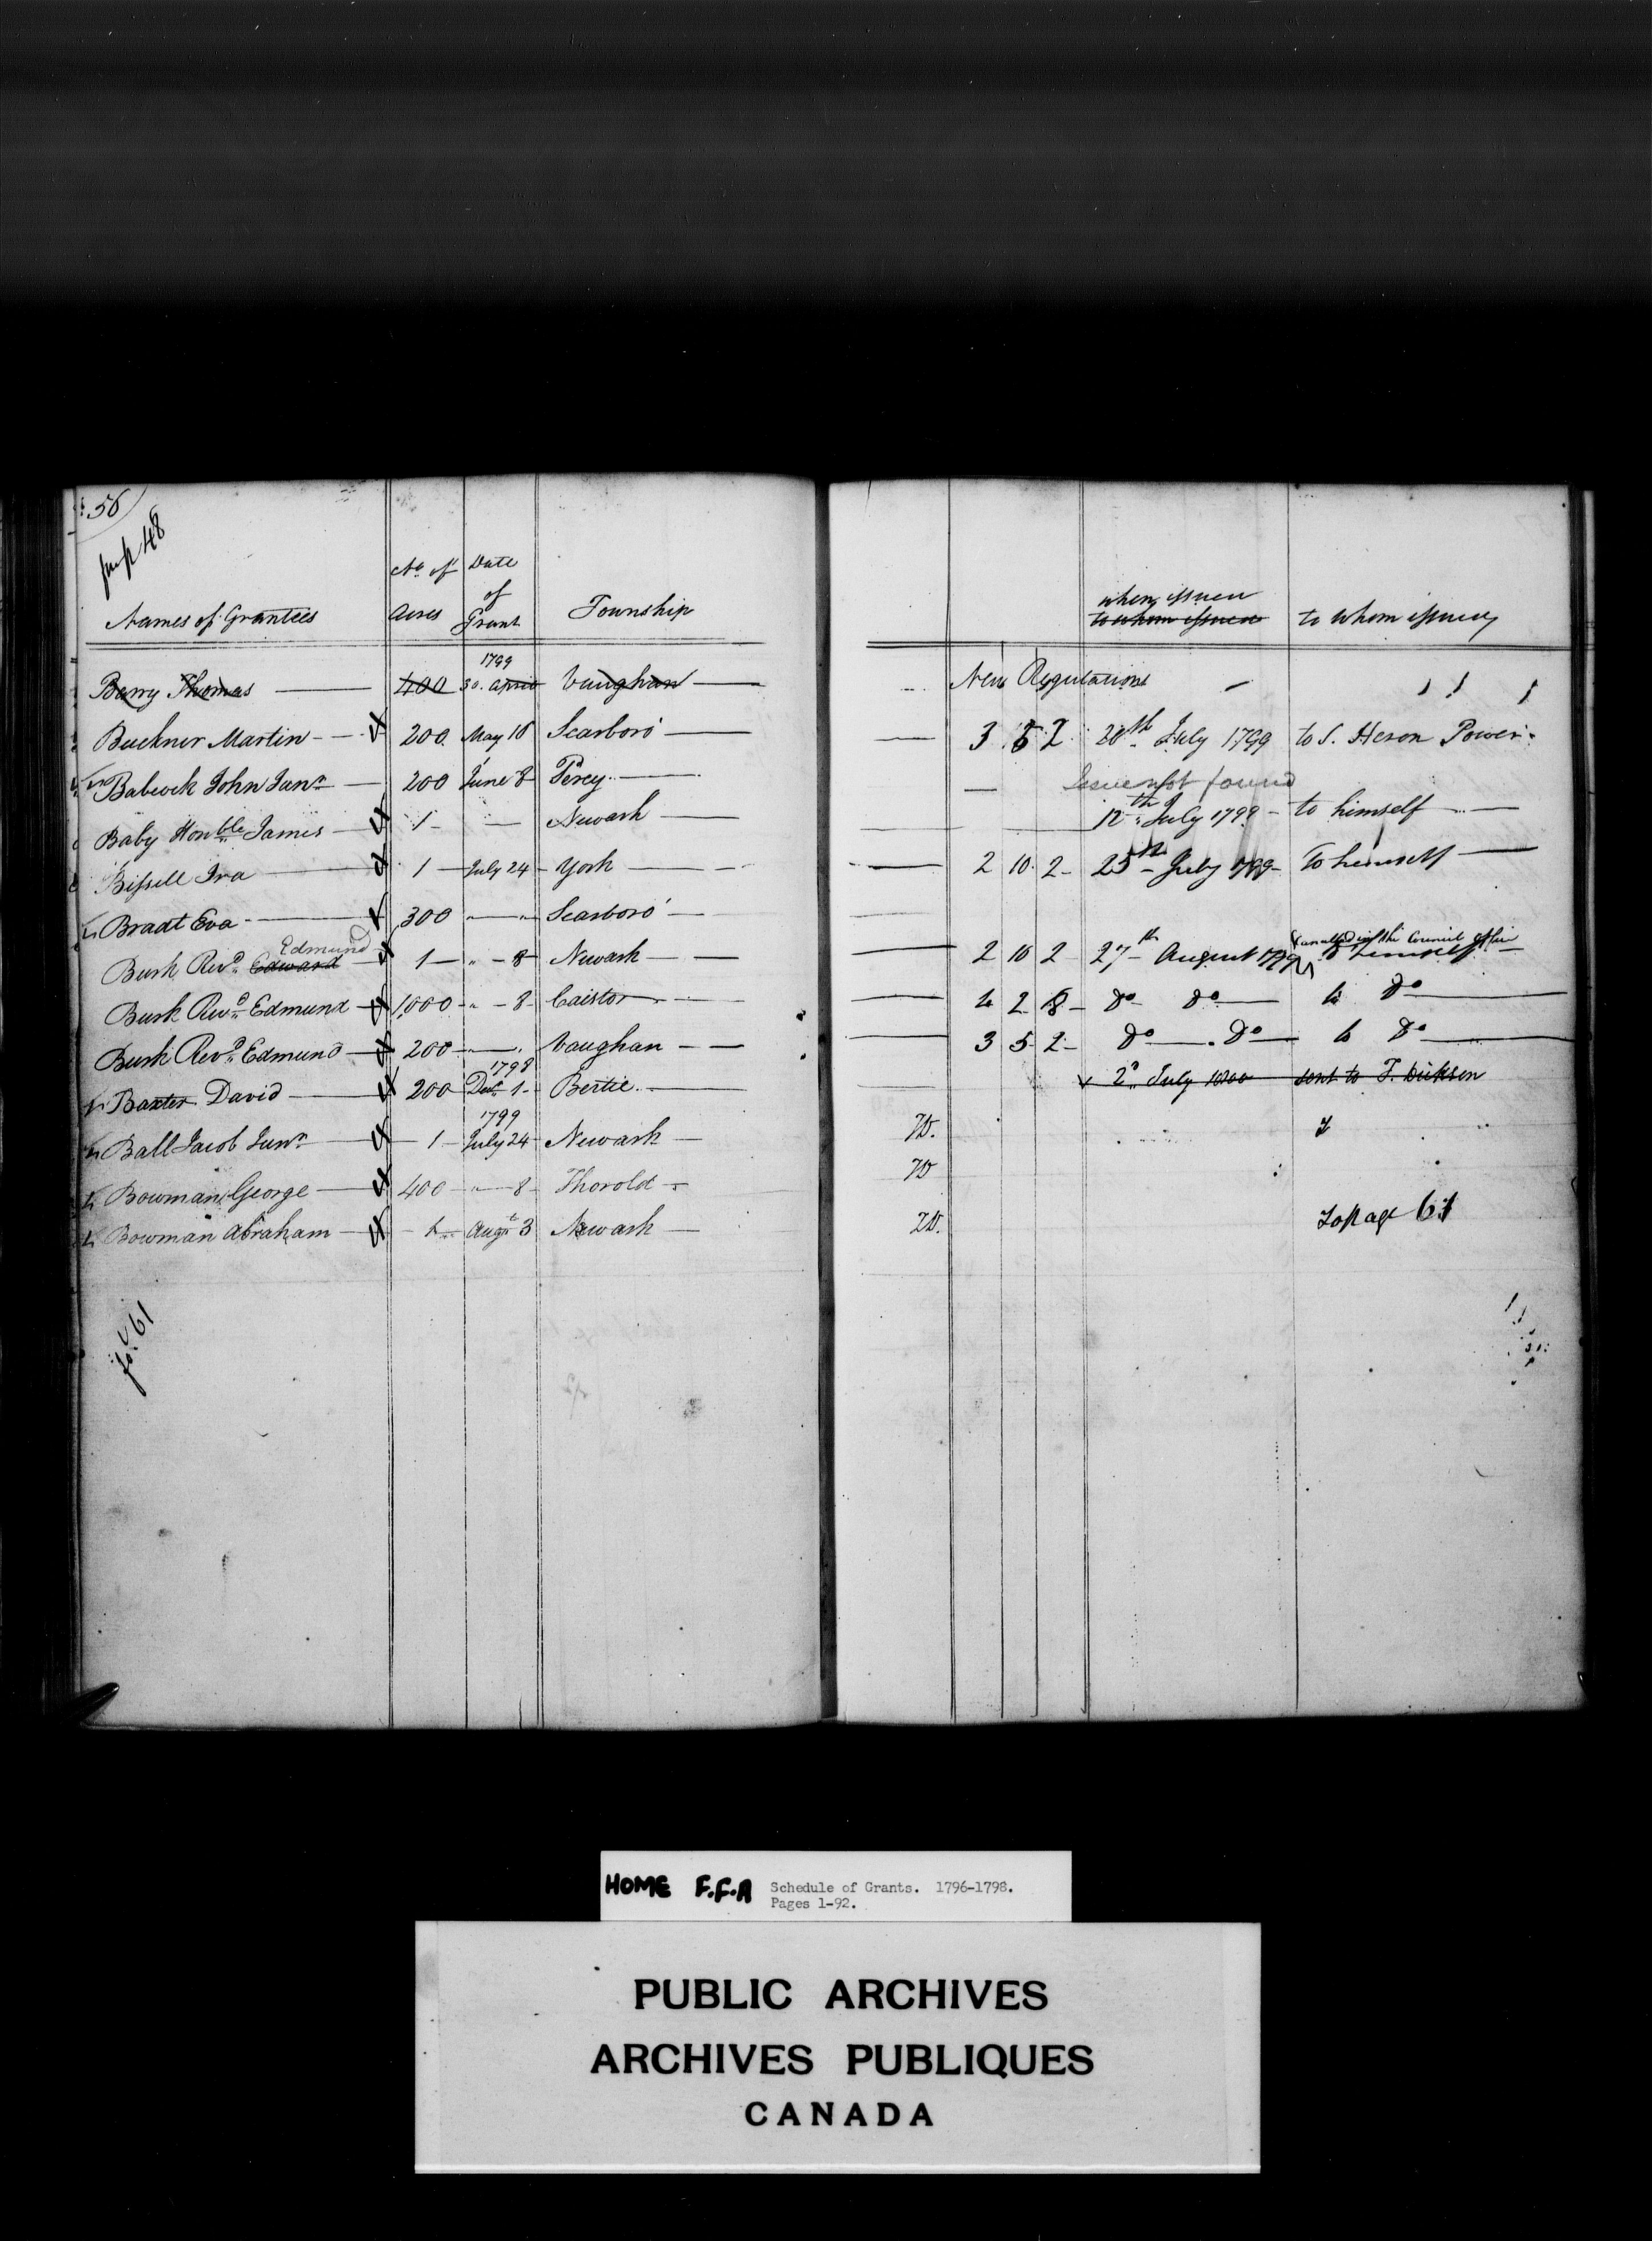 56
from p 48
Names of Grantees No. of Acres Date of Grant Township when issued to whom issued to whom issued
1799
Barry Thomas 400 30. April Vaughan New Regulations
Buckner Martin 200 May 16 Scarboro' 3 5 2 20th July 1799 to S. Heron Power
Babcock John Junr 200 June 8 Percy Issue not found
Baby Honble James 1 Newark 12th July 1799 to himself
Bissell Ira 1 July 24 York 2 10 2 25th July 1799 To himself
Bradt Eva 300 " Scarboro'
Burk Revd Edward Edmund 1 " 8 Newark 2 10 2 27th August 1799 to himself Cancelled in the Council office
Burk Revd Edmund 1,000 " 8 Caistor 4 2 8 Do Do to Do
Burk Revd Edmund 200 " Vaughan 3 5 2 Do Do to Do
1798
Baxter David 200 Decr 1 Bertie 2d July 1800 sent to T. Dickson
1799
Ball Jacob Junr 1 July 24 Newark W.
Bowman George 400 " 8 Thorold W
Bowman Abraham 1 Augt 3 Newark W. To page 61
fo. 61
HOME F.F.A Schedule of Grants. 1796-1798.
Pages 1-92.
PUBLIC ARCHIVES
ARCHIVES PUBLIQUES
CANADA